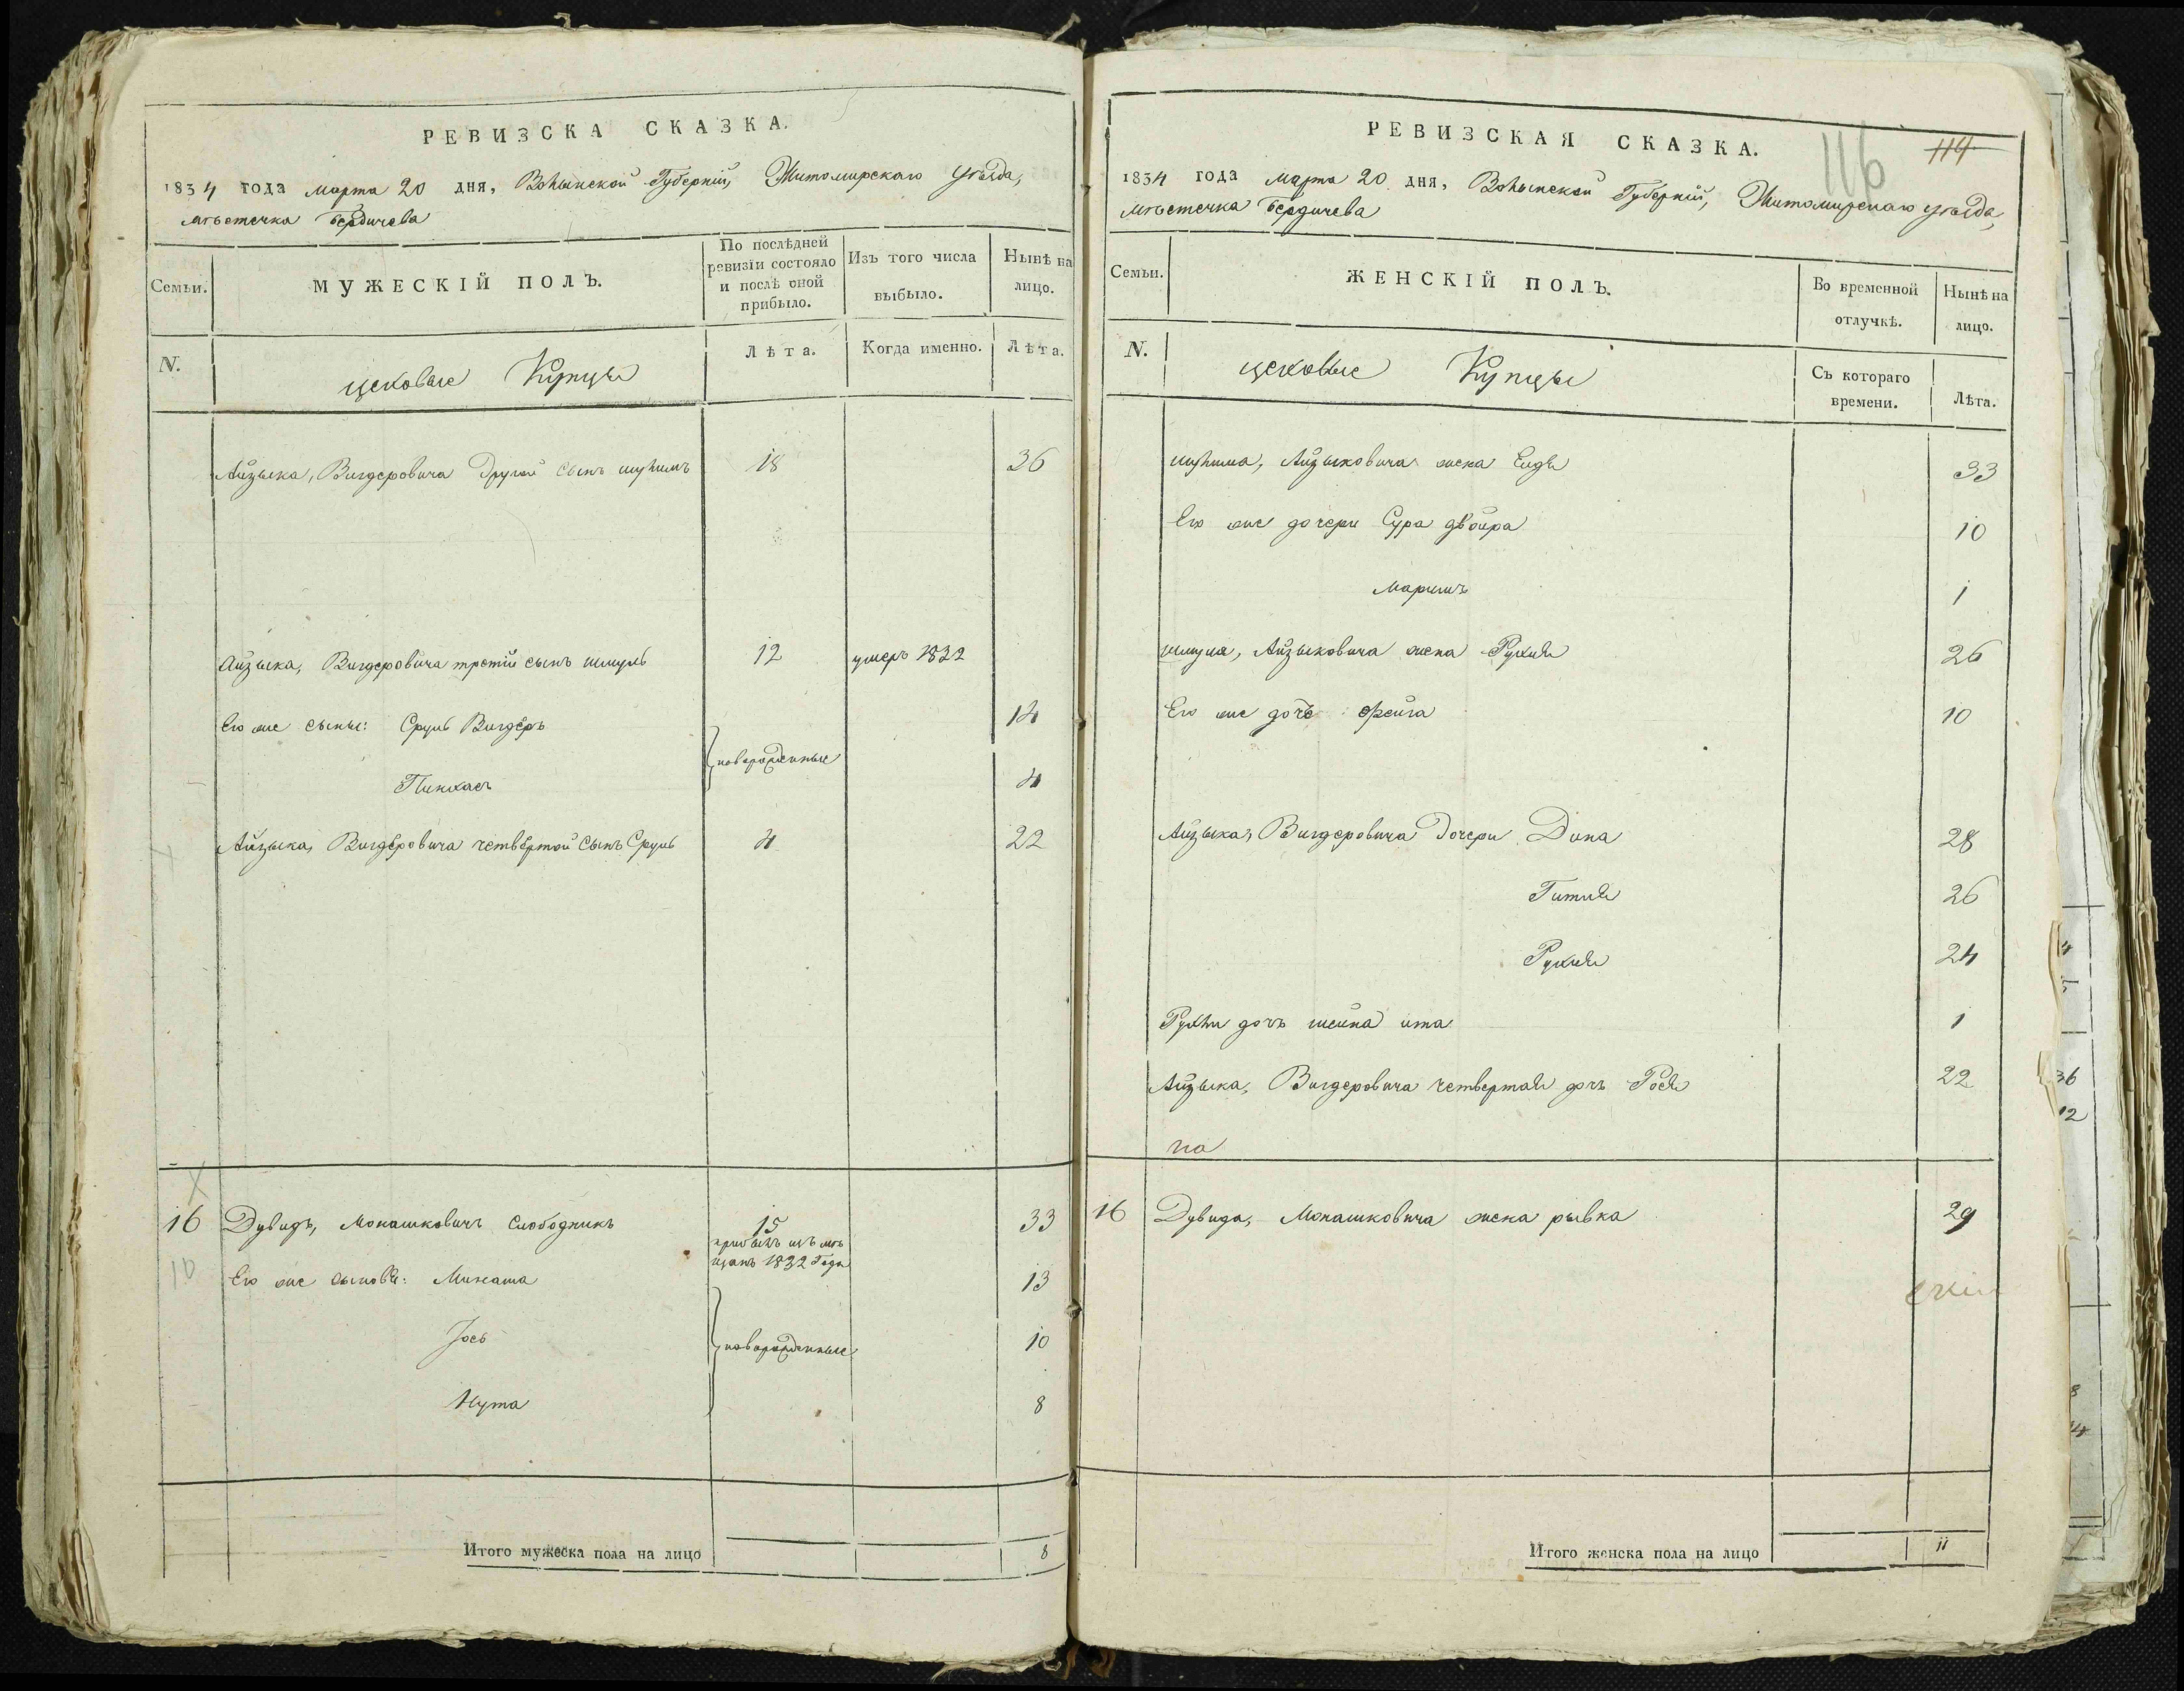 РЕВИЗСКА СКАЗКА.
1834 года марта 20 дня, Волынской Губерніи, Житомирскаго уѣзда,
мѣстечка Бердичева
Семьи.
МУЖЕСКІЙ ПОЛЪ.
По послѣдней ревизіи состояло и послѣ оной прибыло.
Изъ того числа выбыло.
Нынѣ на лицо.
N.
цеховые Купцы
Лѣта.
Когда именно.
Лѣта.
Айзыка, Вигдеровича Другой сынъ шулимъ 18 36
Айзыка, Вигдеровича третій сынъ шмуль 12 умеръ 1832
Его же сыны: Сруль Вигдеръ 14
новорожденные
Пинхасъ 4
Айзыка, Вигдеровича четвертой сынъ Сруль 4 22
16 Дувидъ, Монашковичъ Слободникъ 15 33
прибылъ изъ мѣ
щанъ 1832 Года
10 Его же сыновья: Минаша 13
Іось 10
новорожденные
Нута 8
Итого мужеска пола на лицо 8
116 114
РЕВИЗСКАЯ СКАЗКА.
1834 года марта 20 дня, Волынской Губерніи, Житомирскаго уѣзда,
мѣстечка Бердичева
Семьи.
ЖЕНСКІЙ ПОЛЪ.
Во временной отлучкѣ.
Нынѣ на лицо.
N.
цеховые Купцы
Съ котораго времени.
Лѣта.
шулима, Айзыковича жена Ейдя 33
Его же дочери Сура двойра 10
Маримъ 1
шмуля, Айзыковича жена Рухля 26
Его же дочь Фейга 10
Айзыка, Вигдеровича Дочери Дина 28
Гитля 26
Рухля 24
Рухли дочь шейна ита 1
Айзыка, Вигдеровича четвертая дочь Рося 22
па
16 Дувида, Монашковича жена рывка 29
Итого женска пола на лицо 11